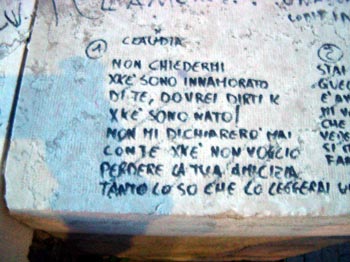 ① CLAUDIA
NON CHIEDERMI
XKE' SONO INNAMORATO
DI TE, DOVREI DIRTI K
XKE' SONO NATO!
NON MI DICHIARERO' MAI
CON TE XKE' NON VOGLIO
PERDERE LA TUA AMICIZIA
TANTO LO SO CHE LO LEGGERAI
②
STAI
E' AV
CHE
SI